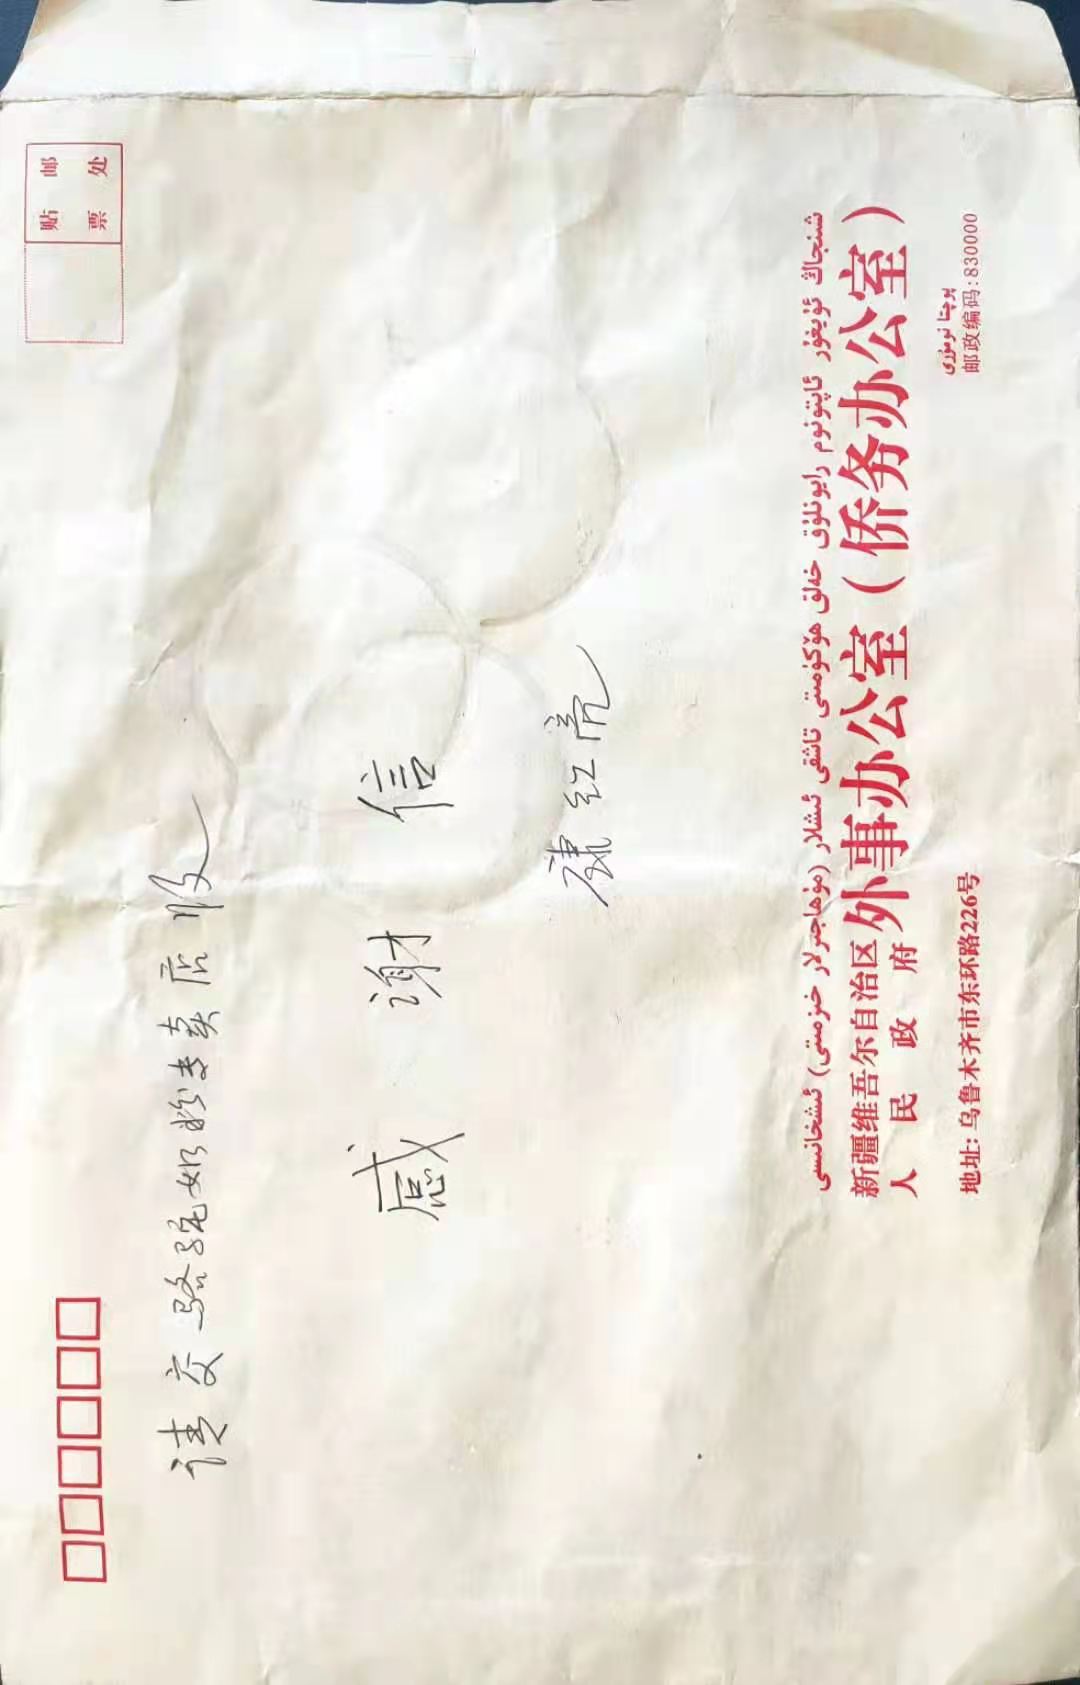 贴 邮
票 处
请交骆驼奶粉专卖店收
感谢信
康红亮
شىنجاڭ ئۇيغۇر ئاپتونوم رايونلۇق خەلق ھۆكۈمىتى تاشقى ئىشلار (مۇھاجىرلار خىزمىتى) ئىشخانىسى
新疆维吾尔自治区
人民政府
外事办公室（侨务办公室）
پوچتا نومۇرى
地址:乌鲁木齐市东环路226号
邮政编码:830000